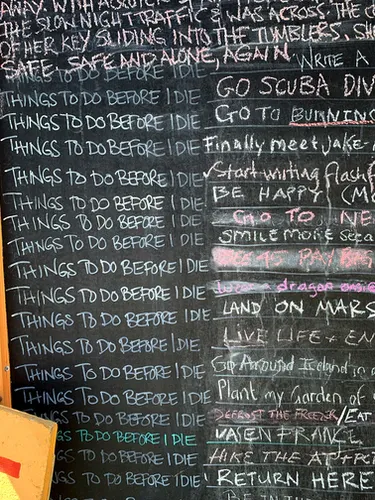 AWAY, WITH
THE SLOW NIGHT TRAFFIC & WAS ACROSS THE
OF HER KEY SLIDING INTO THE TUMBLERS, SH
SAFE, SAFE AND ALONE, AGAIN.
THINGS TO DO BEFORE I DIE WRITE A
THINGS TO DO BEFORE I DIE GO SCUBA DIV
THINGS TO DO BEFORE I DIE GO TO BURNING
THINGS TO DO BEFORE I DIE Finally meet Jake
THINGS TO DO BEFORE I DIE Start writing flash
THINGS TO DO BEFORE I DIE BE HAPPY (M
THINGS TO DO BEFORE I DIE GO TO NE
THINGS TO DO BEFORE I DIE SMILE MORE
THINGS TO DO BEFORE I DIE PAY
THINGS TO DO BEFORE I DIE a dragon
THINGS TO DO BEFORE I DIE LAND ON MARS
THINGS TO DO BEFORE I DIE LIVE LIFE + EN
THINGS TO DO BEFORE I DIE Go Around Iceland in
THINGS TO DO BEFORE I DIE Plant my Garden of
THINGS TO DO BEFORE I DIE DEFROST THE FREEZER/EAT
THINGS TO DO BEFORE I DIE FRANCE
THINGS TO DO BEFORE I DIE HIKE THE AT + PC
THINGS TO DO BEFORE I DIE RETURN HERE